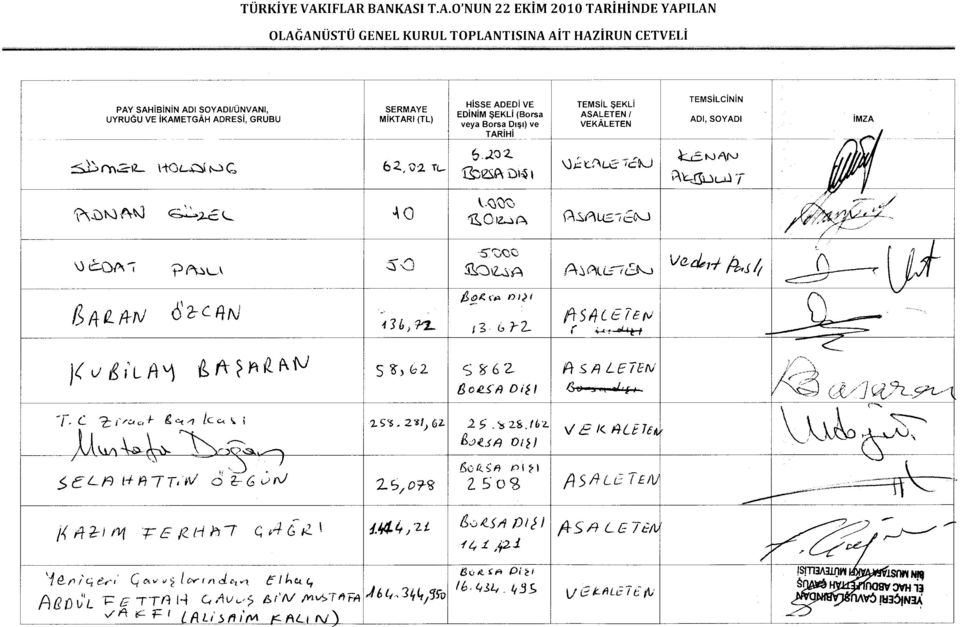 TÜRKİYE VAKIFLAR BANKASI T.A.O'NUN 22 EKİM 2010 TARİHİNDE YAPILAN
OLAĞANÜSTÜ GENEL KURUL TOPLANTISINA AİT HAZİRUN CETVELİ
PAY SAHİBİNİN ADI SOYADI/ÜNVANI, UYRUĞU VE İKAMETGÂH ADRESİ, GRUBU
SERMAYE MİKTARI (TL)
HİSSE ADEDİ VE EDİNİM ŞEKLİ (Borsa veya Borsa Dışı) ve TARİHİ
TEMSİL ŞEKLİ ASALETEN / VEKÂLETEN
TEMSİLCİNİN ADI, SOYADI
İMZA
SÜMER HOLDİNG 62,02 TL 6.202 BORSA DIŞI VEKALETEN KENAN AKBULUT
ADNAN GÜZEL 10 1.000 BORSA ASALETEN
VEDAT PAŞLI 50 5.000 BORSA ASALETEN Vedat Paşlı
BARAN ÖZCAN 136,72 BORSA DIŞI 13.672 ASALETEN
KUBİLAY BAŞARAN 58,62 5862 BORSA DIŞI ASALETEN Başaran
T.C Ziraat Bankası 258.281,62 25.828.162 BORSA DIŞI VEKALETEN
Mustafa Doğan
SELAHATTİN ÖZGÜN 25,078 BORSA DIŞI 2508 ASALETEN
KAZIM FERHAT ÇAĞRI 1.414,21 BORSA DIŞI 141,421 ASALETEN
Yeniçeri Çavuşlarından Elhaç 164.344,950 BORSA DIŞI 16.434.495 VEKALETEN
ABDÜL FETTAH ÇAVUŞ BİN MUSTAFA
VAKFI (ALİSAİM KALIN)
YENİÇERİ ÇAVUŞLARINDAN
EL HAC ABDULFETTAH ÇAVUŞ
BİN MUSTAFA VAKFI MÜTEVELLİSİ